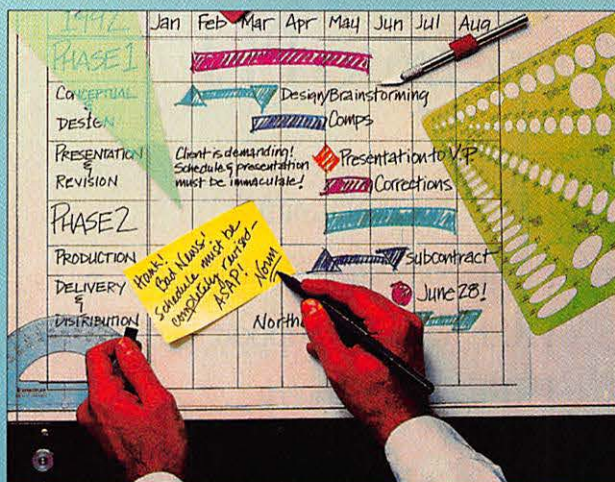 1992
Jan Feb Mar Apr May Jun Jul Aug
PHASE 1
CONCEPTUAL
&
DESIGN
Design/Brainstorming
Comps
PRESENTATION
&
REVISION
Client is demanding!
Schedule & presentation
must be immaculate!
Presentation to V.P.
Corrections
PHASE 2
PRODUCTION
subcontract
DELIVERY
&
DISTRIBUTION
June 28!
North
Hank!
Bad News!
Schedule must be
completely revised-
ASAP!
Norm